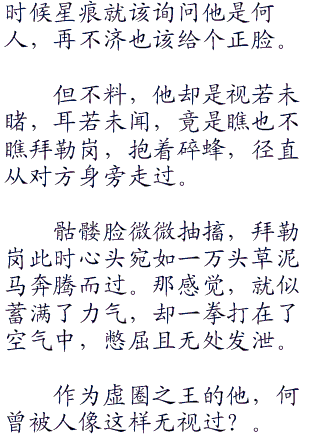 时候星痕就该询问他是何
人，再不济也该给个正脸。
但不料，他却是视若未
睹，耳若未闻，竟是瞧也不
瞧拜勒岗，抱着碎蜂，径直
从对方身旁走过。
骷髅脸微微抽搐，拜勒
岗此时心头宛如一万头草泥
马奔腾而过。那感觉，就似
蓄满了力气，却一拳打在了
空气中，憋屈且无处发泄。
作为虚圈之王的他，何
曾被人像这样无视过？。